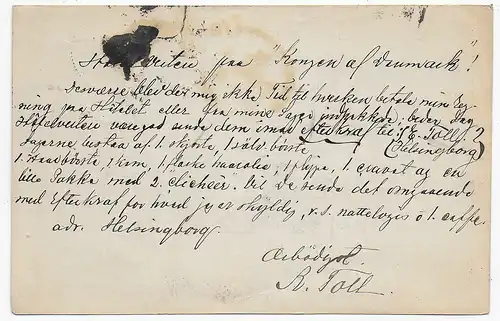 Hotelverten paa "Kongen af Danmark"!
Desværre blev der mig ikke Tid til hverken betale min Reg-
ning paa Hotelet eller faa mine Sager indpakket; beder Dem
Hotelverten være god sende dem imod efterkrav til: E. Toll,
(Helsingborg)
Sagerne bestaa af: 1 skjorte, 1 börste
1 Haarbörste, 1 kam, 1 flaske 1 flippe, 1 cravat og en
lille Pakke med 2 "clicheer". Vil De sende det omgaaende
med Efterkraf for hvad jeg er skyldig, v.s. nattelogis o 1 caffe.
adr. Helsingborg.
Ærbödigst
R. Toll